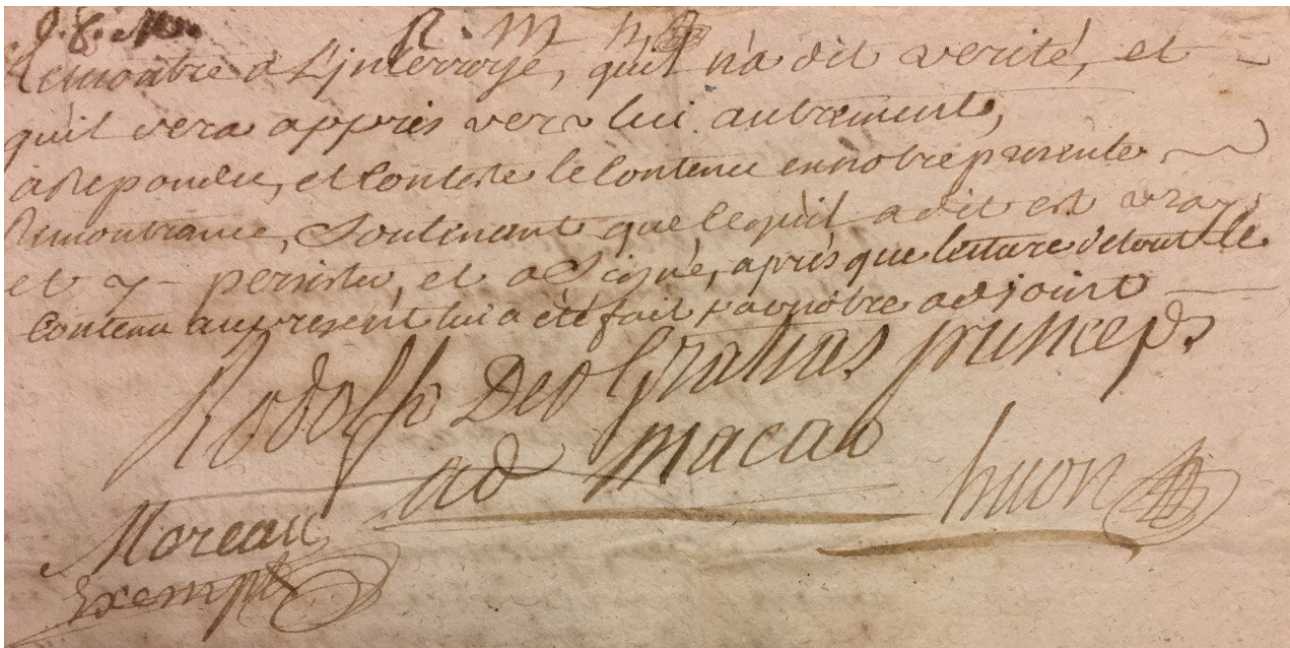 R. M h
Remontré a L'jnterroyé, quil n'a dit verité, et
quil sera appris vers lui autrement,
a Repondu, et Conteste le Contenu en notre presente
Remontrance, Soutenant que ce qu'il a dit est vray
et y persister, et a Signé, après que lecture de tout le
Contenu au present lui a été fait par nôtre adjoint
Rodolfh Deo Gratias princeps
ad macao
huon
Moreau
Exempt